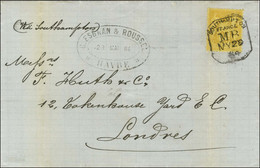 Via Southampton
& ROUSSEL
HAVRE
SOUTHAMPTON
FRANCE
M B
NV 26
Messrs
F. Huth & Co.
12, Tokenhouse Yard E.C.
Londres